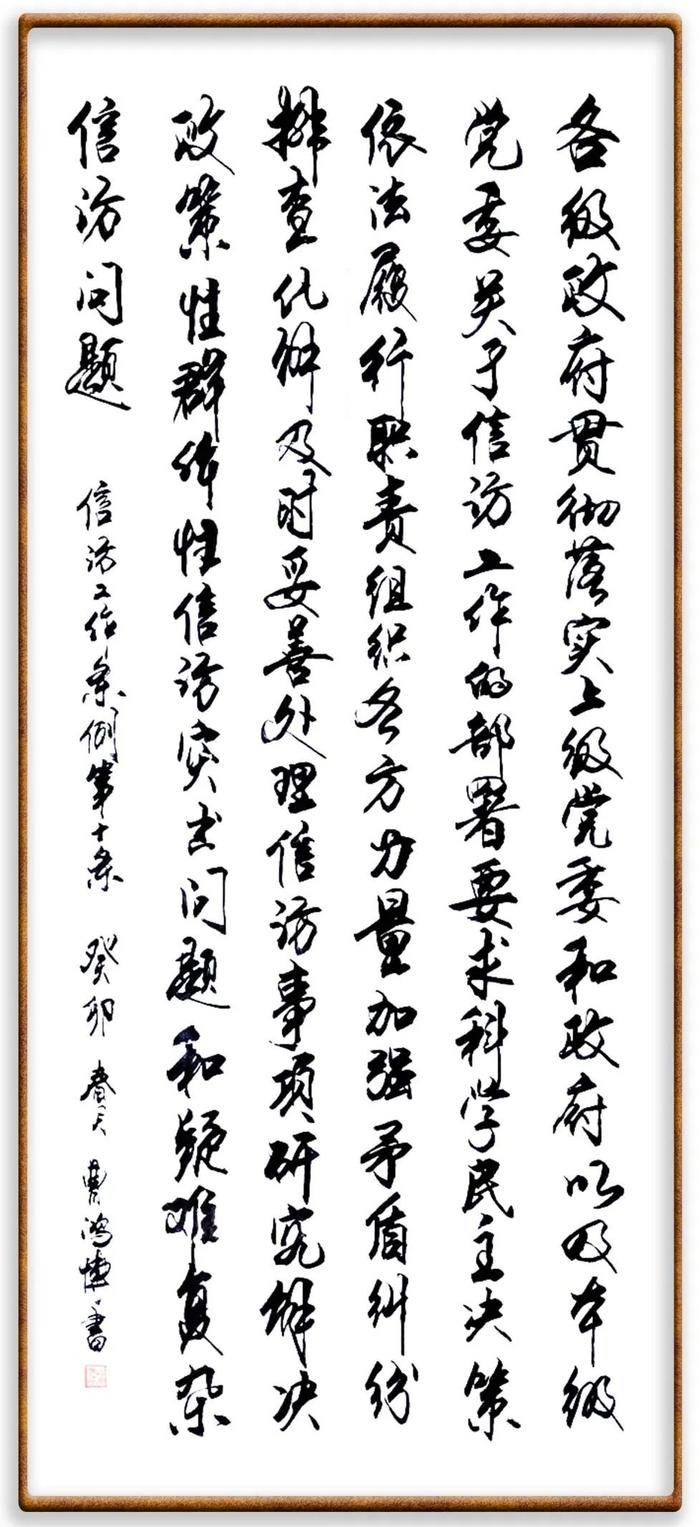 各级政府贯彻落实上级党委和政府以及本级
党委关于信访工作的部署要求科学民主决策
依法履行职责组织各方力量加强矛盾纠纷
排查化解及时妥善处理信访事项研究解决
政策性群体性信访突出问题和疑难复杂
信访问题
信访工作条例第十条 癸卯 春天 曹鸿 书